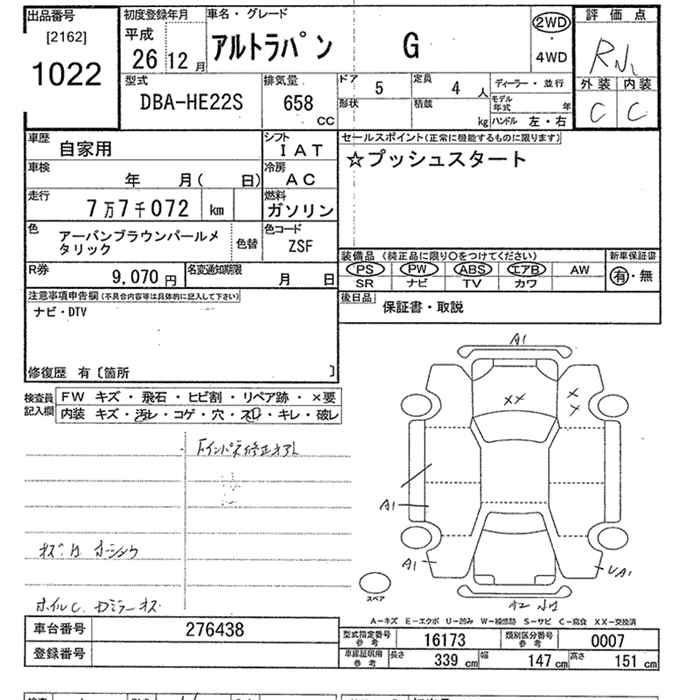 出品番号
[2162]
1022
初度登録年月
平成
26 12 月
車名・グレード
アルトラパン G
2WD
・
4WD
評価点
外装 内装
C C
型式
DBA-HE22S
排気量
658
cc
ドア 5
定員 4 人
ディーラー・並行
形状
積載 kg
モデル年式 年
ハンドル 左・右
車歴
自家用
シフト
IAT
車検
年 月( 日)
冷房
AC
走行
7万7千072 km
燃料
ガソリン
色
アーバンブラウンパールメタリック
色替
色コード
ZSF
R券
9,070 円
名変通知期限
月 日
セールスポイント(正常に機能するものに限ります)
☆プッシュスタート
装備品 (純正品に限り○をつけてください)
PS PW ABS エアB AW
SR ナビ TV カワ
新車保証書
有・無
後日品
保証書・取説
注意事項申告欄(不具合内容等は具体的に記入して下さい)
ナビ・DTV
修復歴 有〔箇所 〕
検査員記入欄
FW キズ・飛石・ヒビ割・リペア跡・×要
内装 キズ・汚レ・コゲ・穴・スレ・キレ・破レ
A1
XX
X
X
A1
A1
UA1
スペア
A-キズ E-エクボ U-凹み W-補修跡 S-サビ C-腐食 XX-交換済
車台番号
276438
登録番号
型式指定番号
参考
16173
類別区分番号
参考
0007
車庫証明用
参考
長さ 339 cm
幅 147 cm
高さ 151 cm